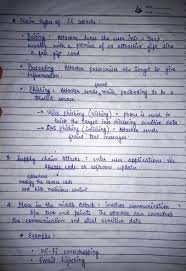 * Main types of SE attacks :
• Baiting : Attacker lures the user into a trap
usually with a promise of an attractive gift like
a free gift card
• Pretexting : Attacker pressurizes the target to give
information.
• Phishing : Attacker sends emails, pretending to be a
trusted source
→ Voice phishing (Vishing) - phone is used to
trick the target into disclosing sensitive data
→ SMS phishing (Smishing) - Attacker sends
text messages
3. Supply chain Attack : enter user applications via
source code or software updates
attackers
modify the source code
and hide malicious content
4. Man in the middle attack : involves communication
b/w two end points. The attacker can intercept
the communication and steal sensitive data
* Example :
• Wi-Fi eavesdropping
• Email hijacking